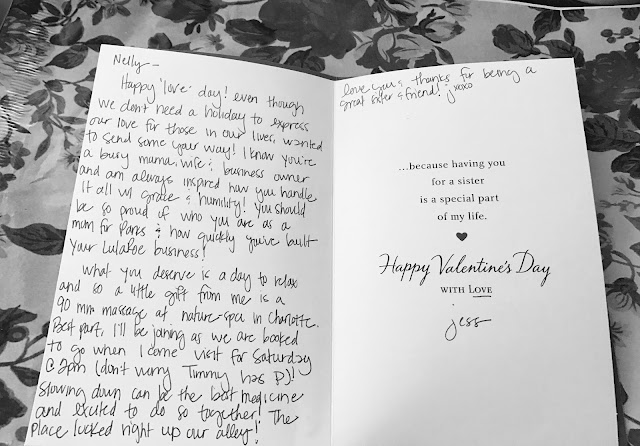 Nelly –
Happy 'love' day! even though
we don't need a holiday to express
our love for those in our lives, wanted
to send some your way! I know you're
a busy mama, wife & business owner
and am always inspired how you handle
it all w/ grace & humility! You should
be so proud of who you are as a
mom for Parks & how quickly you've built
your LulaRoe business!
What you deserve is a day to relax
and so a little gift from me is a
90 min massage at nature-spa in Charlotte.
Best part, I'll be joining as we are booked
to go when I come visit for Saturday
@ 2pm (don't worry Timmy has P)!
Slowing down can be the best medicine
and excited to do so together! The
place looked right up our alley!
love you & thanks for being a
great sister & friend! jxoxo
...because having you
for a sister
is a special part
of my life.
Happy Valentine's Day
WITH LOVE
jess